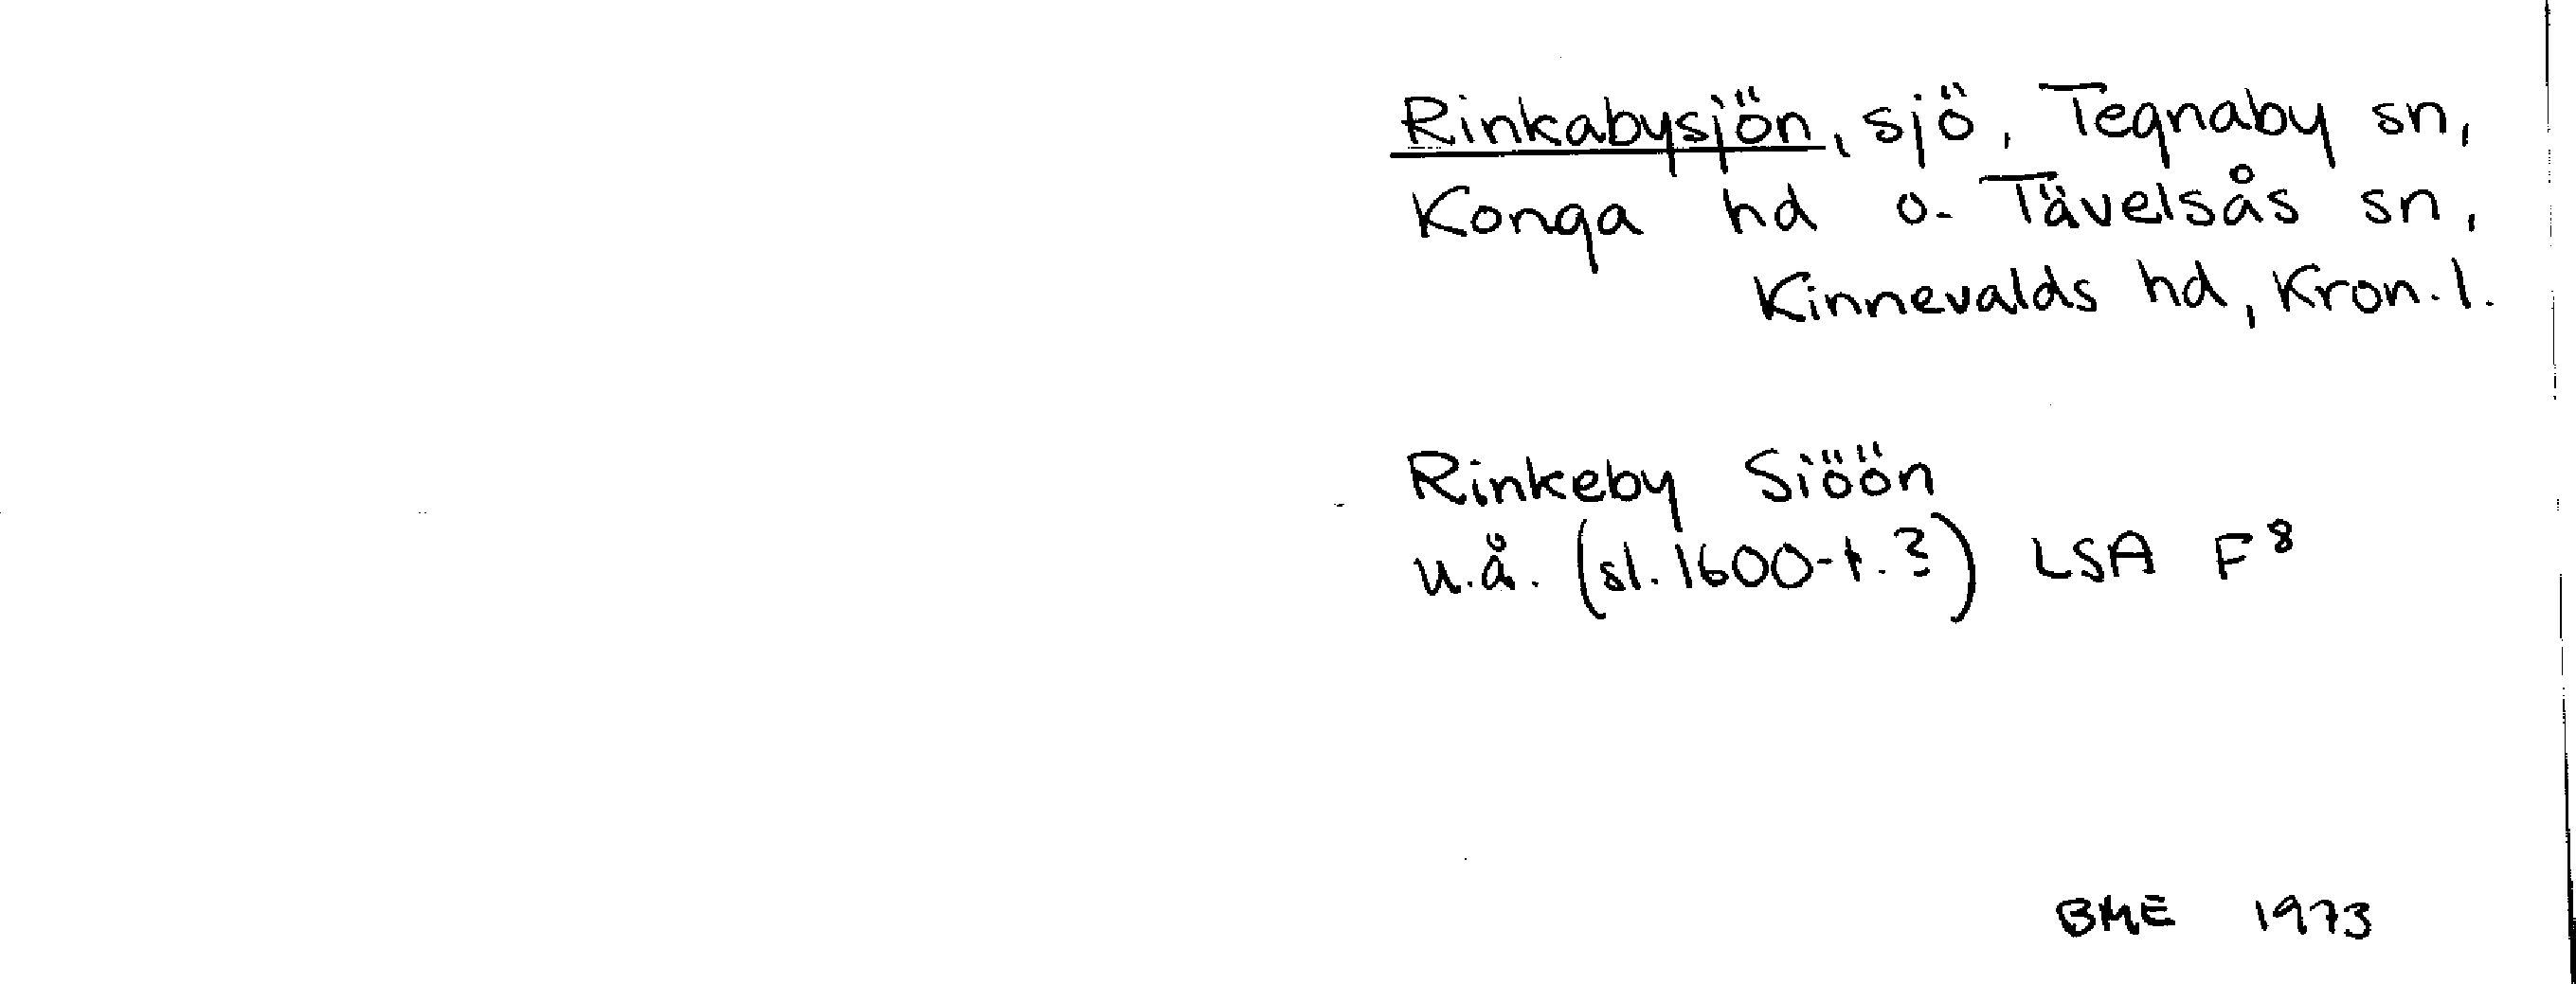 Rinkabysjön, sjö, Tegnaby sn,
Konga hd o. Tävelsås sn,
Kinnevalds hd, Kron.l.
Rinkeby Siöön
u.å. (sl. 1600-t.?) LSA F⁸
BME 1973